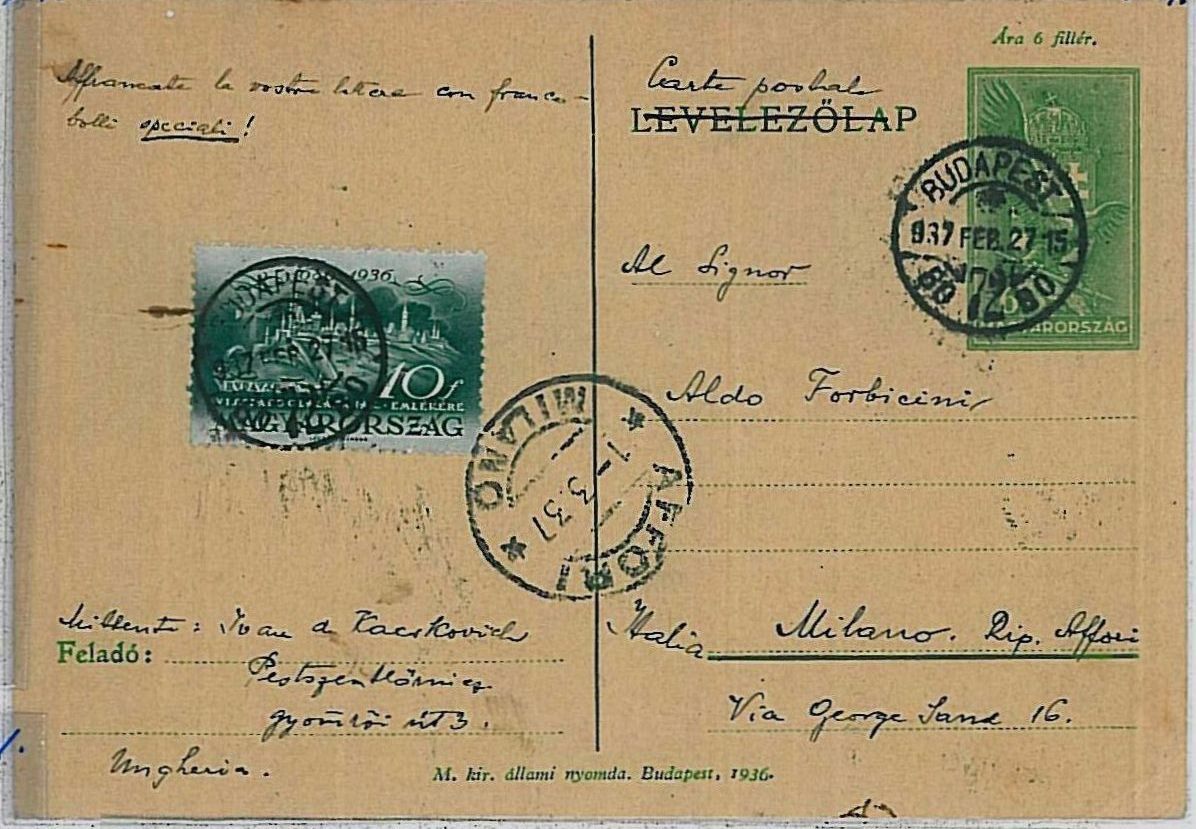 Affrancate le vostre lettere con franco-
bolli speciali!
Ára 6 fillér.
Carte postale
LEVELEZŐLAP
BUDAPEST
937 FEB. 27-15
72
MAGYARORSZÁG
1936
BUDAPEST
937 FEB. 27-15
10f
EMLÉKÉRE
MAGYARORSZÁG
Al Signor
Aldo Forbicini
MILANO
1-3.37
AFFORI
Italia Milano. Rip. Affori
Via George Sand 16.
Mittente: Ivan de Kacskovich
Feladó:
Pestszentlőrincz
gyömrői út 3.
Ungheria.
M. kir. állami nyomda. Budapest, 1936.